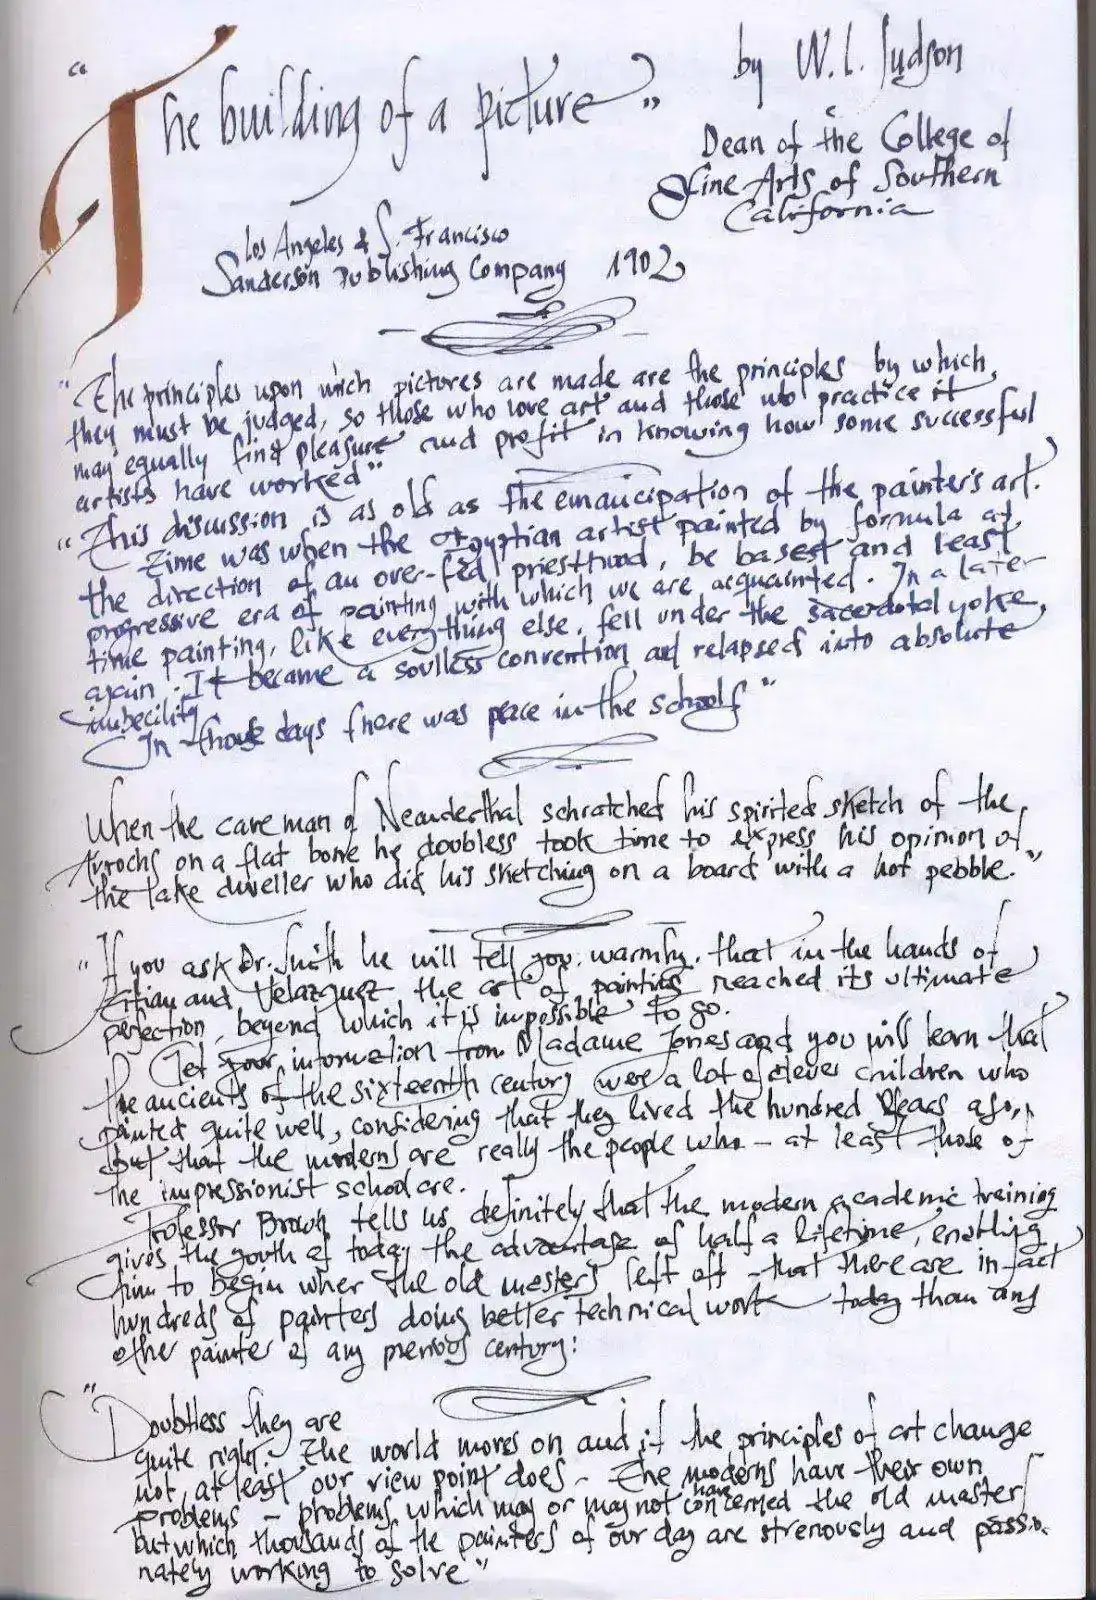 "The building of a picture"
by W. L. Judson
Dean of the College of
Fine Arts of Southern
California
Los Angeles & S. Francisco
Sanderson Publishing Company 1902
"The principles upon wich pictures are made are the principles by which,
they must be judged, so those who love art and those who practice it
may equally find pleasure and profit in knowing how some successful
artists have worked"
"This discussion is as old as the emancipation of the painter's art.
Time was when the Egyptian artist painted by formula at
the direction of an over-fed priesthood, be basest and least
progressive era of painting with which we are acquainted. In a later
time painting, like everything else, fell under the sacerdotal yoke,
again. It became a soulless convention and relapsed into absolute
imbecility
In those days there was peace in the schools"
When the cave man of Neanderthal schratched his spirited sketch of the
Aurochs on a flat bone he doubless took time to express his opinion of
the lake dweller who did his sketching on a board with a hot pebble."
"If you ask Dr. Smith he will tell you, warmly, that in the hands of
Titian and Velazquez the art of painting reached its ultimate
perfection, beyond which it is impossible to go.
Get your information from Madame Jones and you will learn that
the ancients of the sixteenth century were a lot of clever children who
painted quite well, considering that they lived the hundred years ago,
but that the moderns are really the people who - at least those of
the impressionist school are.
Professor Brown tells us definitely that the modern academic training
gives the youth of today the advantage of half a lifetime, enabling
him to begin wher the old masters left off - that there are in fact
hundreds of painters doing better technical work today than any
other painter of any previous century:
"Doubtless they are
quite right. The world moves on and if the principles of art change
not, at least our view point does - The moderns have their own
problems - problems which may or may not have concerned the old masters
but which thousands of the painters of our day are strenously and passio-
nately working to solve"